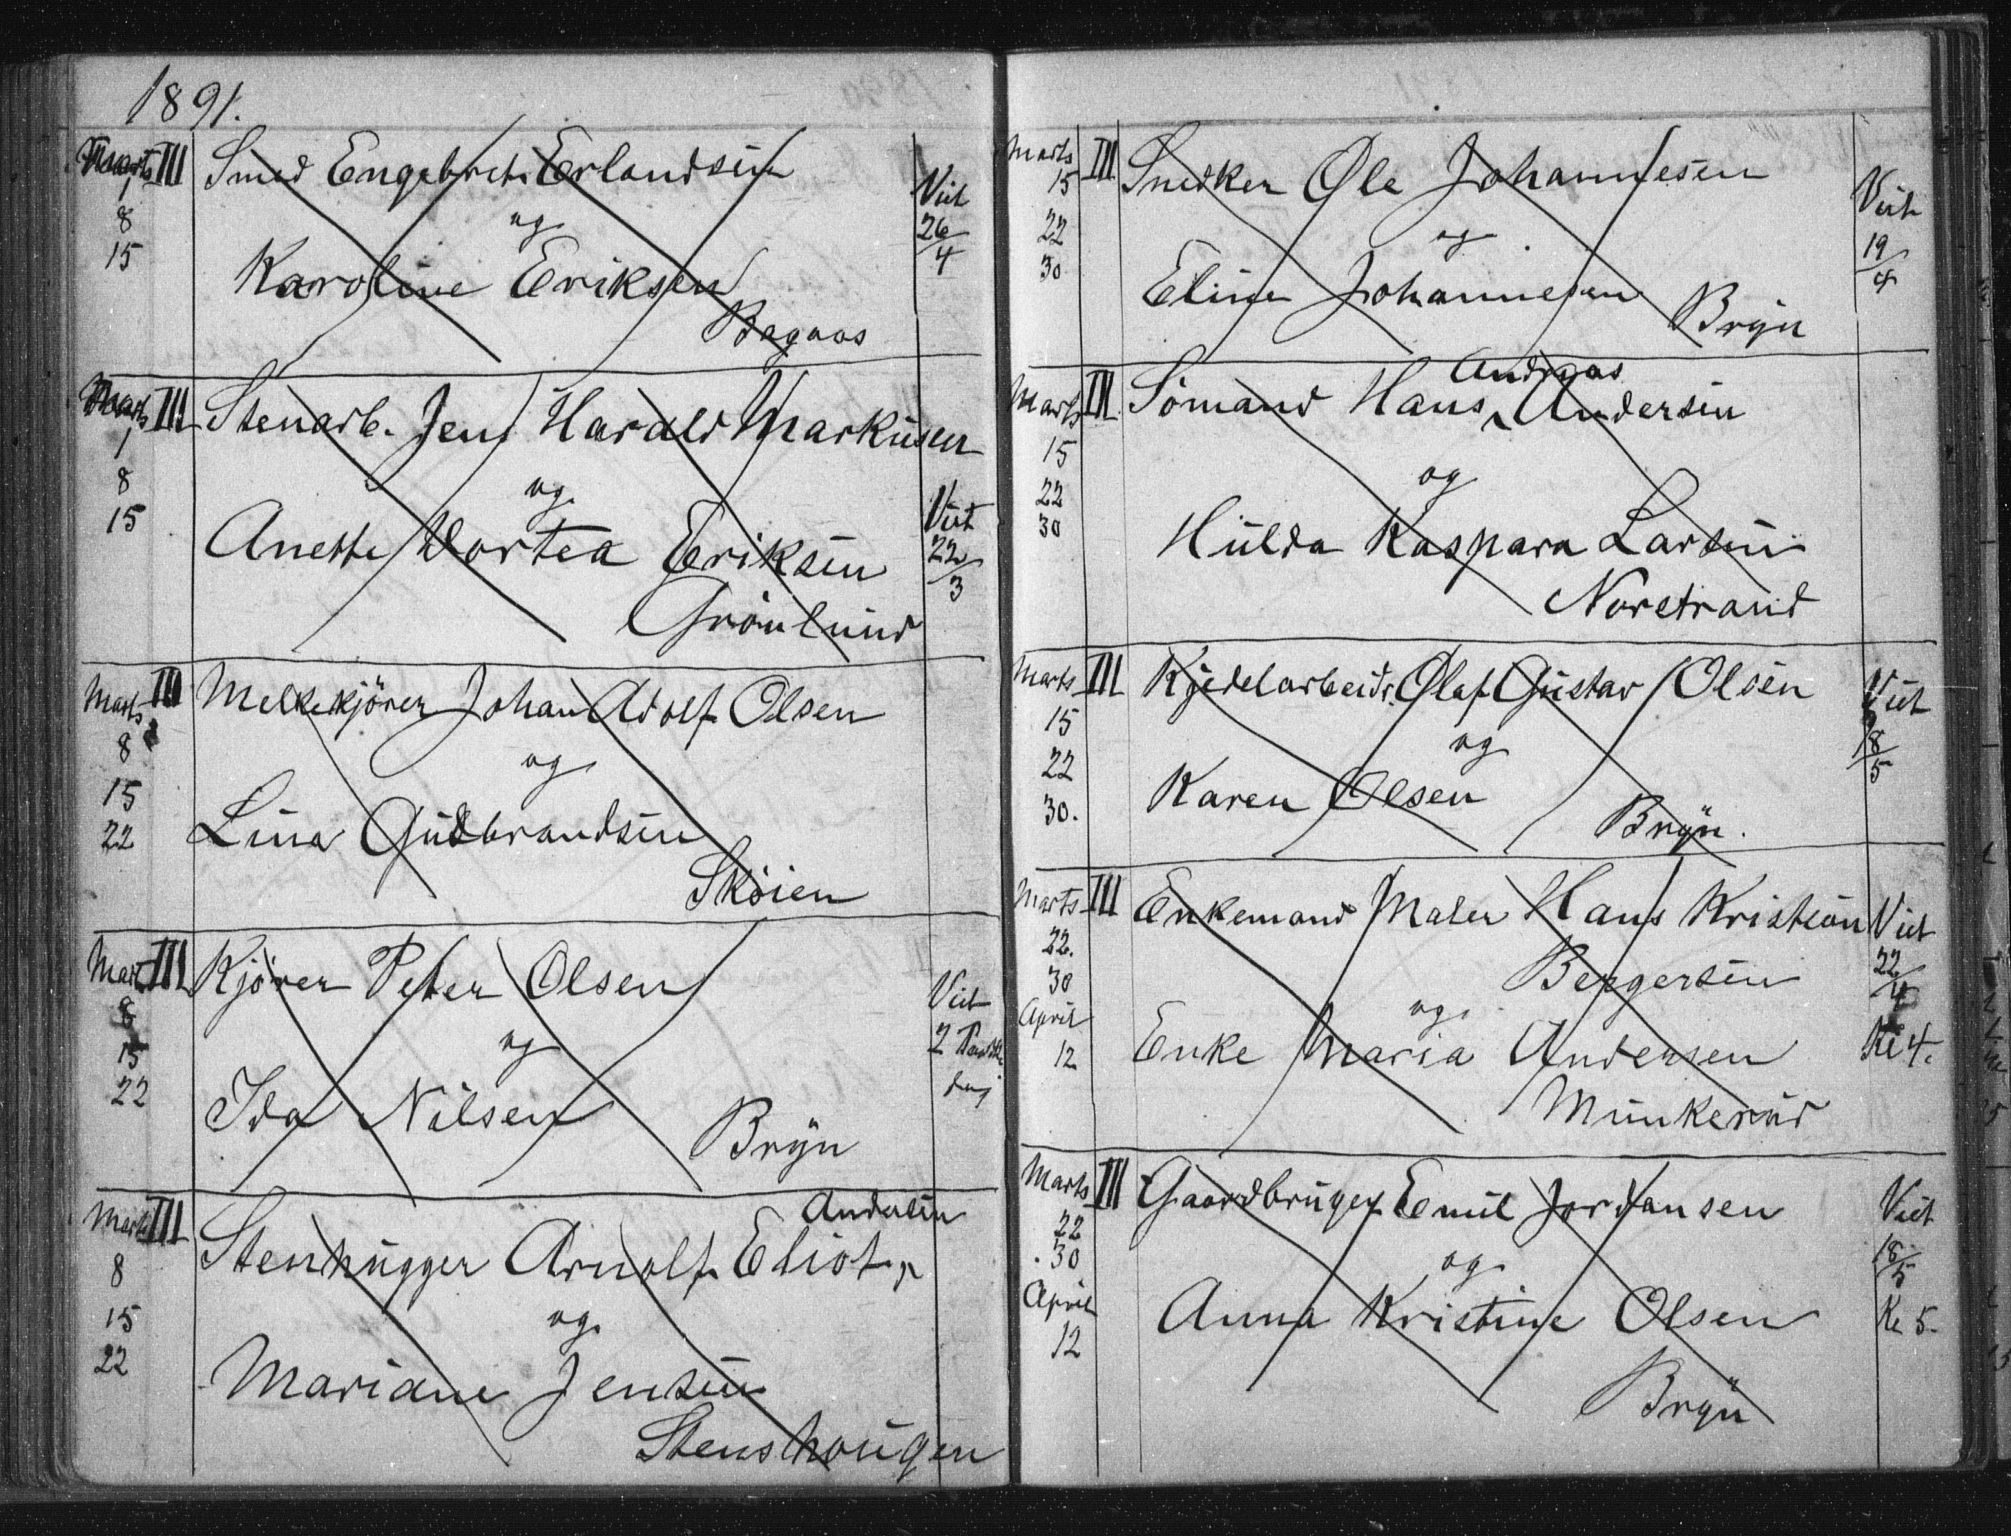 1891.
Marts III Smed Engebret Erlandsen
1
8 og Viet 26/4
15 Karoline Eriksen
Bagaas
Marts III Stenarb. Jens Harald Markusen
1
8 og Viet 22/3
15 Anette Dortea Eriksen
Grönlund
Marts III Melkekjörer Johan Adolf Olsen
8 og
15
22 Lina Gudbrandsen
Sköien
Marts III Kjörer Peter Olsen
8 Viet
15 og 2 Paaske
22 dag
Ida Nilsen
Bryn
Andersen
Marts III Stenhugger Arnolf Eliot
8
15 og
22 Mariane Jensen
Stenshougen
Marts III Snedker Ole Johannesen
15 Viet
22 og 19/4
30 Eline Johannesen
Bryn
Andreas
Marts III Sömand Hans Andersen
15
22 og
30 Hulda Kaspara Larsen
Norstrand
Marts III Kjedelarbeidr. Olaf Gustav Olsen
15 Viet
22 og 18/5
30. Karen Olsen
Bryn.
Marts III Enkemand Maler Hans Kristian Viet
22. Bergersen 22/4
30 og
April
12 Enke Maria Andersen Kr 4.
Munkerud
Marts III Gaardbruger Emil Jordansen Viet
22
30 og 18/5
April Anna Kristine Olsen Kr 5.
12
Bryn